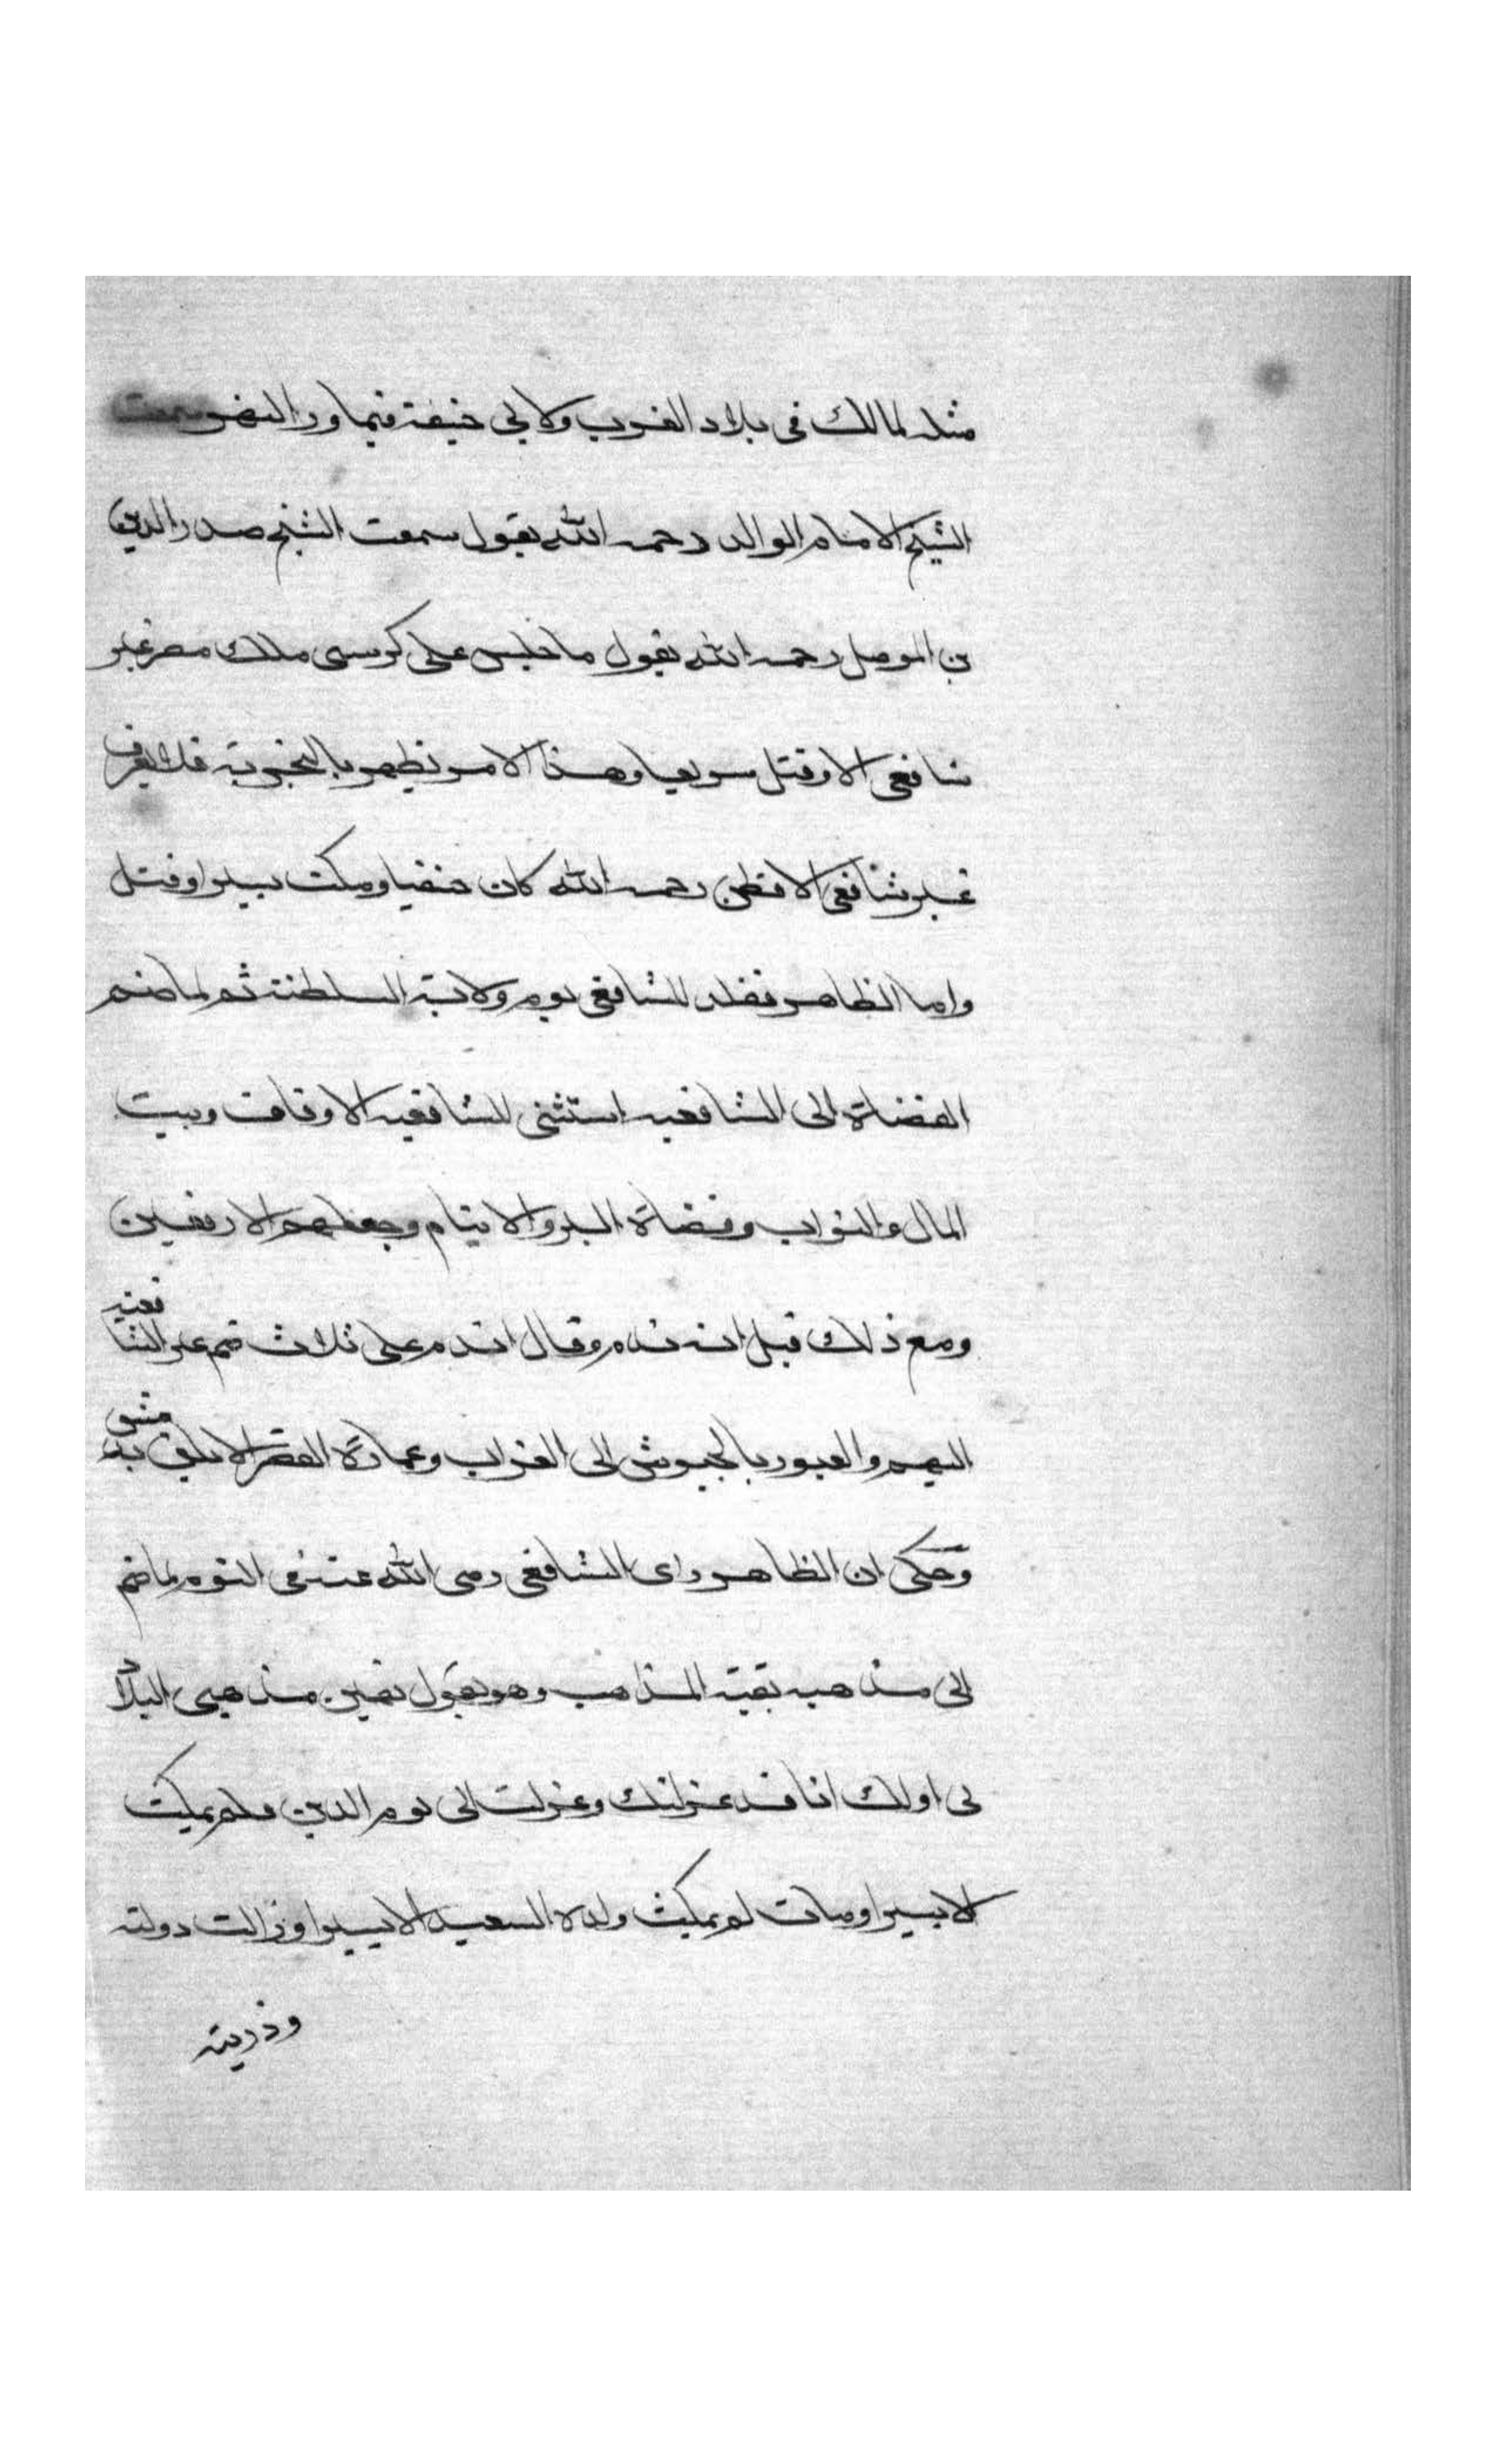 مثله لمالك في بلاد الغرب ولابي حنيفة فيما ورا النهر سمعت
الشيخ الامام الوالد رحمه الله يقول سمعت الشيخ صدر الدين
بن المرحل رحمه الله يقول ما جلس على كرسي ملك مصر غير
شافعي الا وقتل سريعا وهذا الامر يظهر بالتجربة فلا يعرف
غير شافعي الا قطز رحمه الله كان حنفيا ومكث يسيرا وقتل
واما الظاهر فقلد للشافعي يوم ولاية السلطنة ثم لما ضم
القضاة الى الشافعيه استثنى للشافعيه الاوقاف وبيت
المال والنواب وقضاة البر والايتام وجعلهم الارفعين
ومع ذلك قيل انه ندم وقال اندم على ثلاث ضم غير الشافعيه
اليهم والعبور بالجيوش الى الفرات وعمارة القصر الابلق بدمشق
وحكى ان الظاهر راى الشافعي رضى الله عنه في النوم لما ضم
الى مذهبه بقية المذاهب وهو يقول تهين مذهبي البلاد
لى او لك انا قد عزلتك وعزلت الى يوم الدين فلم يمكث
الا يسيرا ومات لم يمكث ولده السعيد الا يسيرا وزالت دولته
وذريته